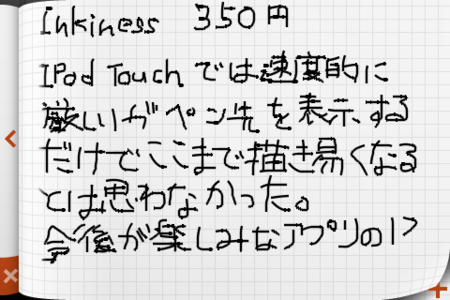 Inkiness 350円
IPod Touchでは速度的に
厳しいがペン先を表示する
だけでここまで描き易くなる
とは思わなかった。
今後が楽しみなアプリの1つ